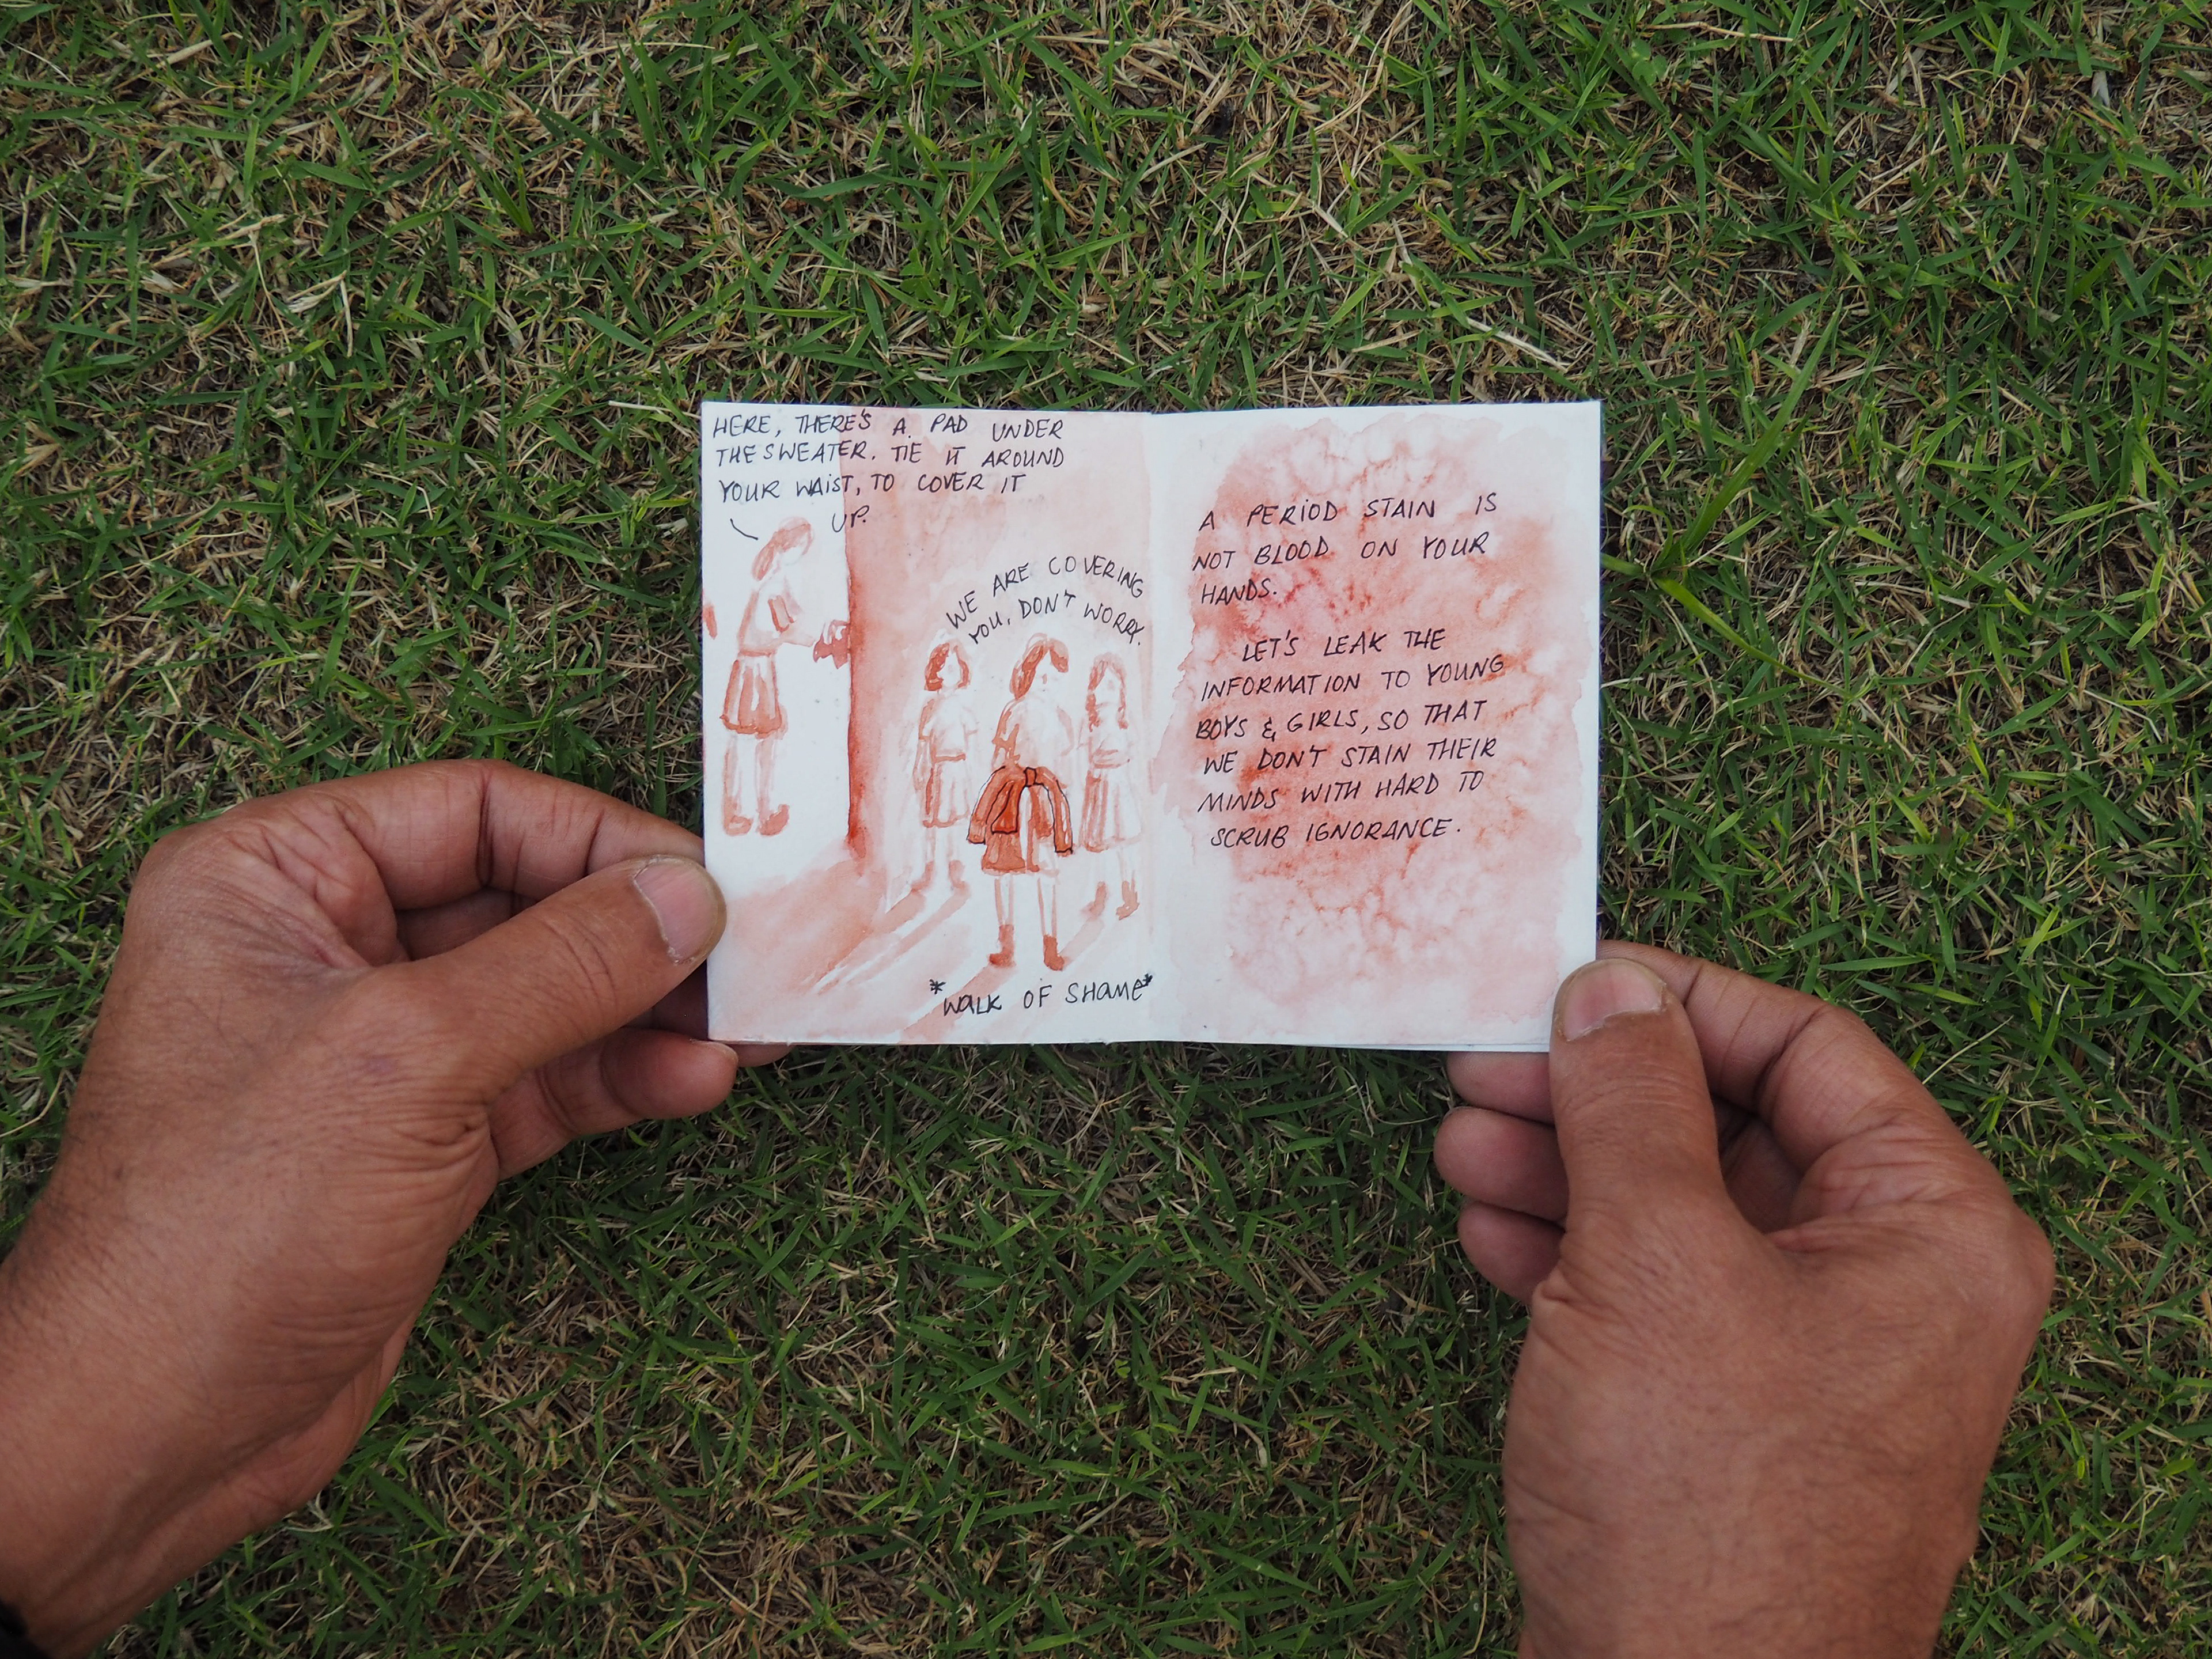 HERE, THERE'S A PAD UNDER
THE SWEATER. TIE IT AROUND
YOUR WAIST, TO COVER IT
UP.
WE ARE COVERING
YOU, DON'T WORRY.
*WALK OF SHAME*
A PERIOD STAIN IS
NOT BLOOD ON YOUR
HANDS.
LET'S LEAK THE
INFORMATION TO YOUNG
BOYS & GIRLS, SO THAT
WE DON'T STAIN THEIR
MINDS WITH HARD TO
SCRUB IGNORANCE.